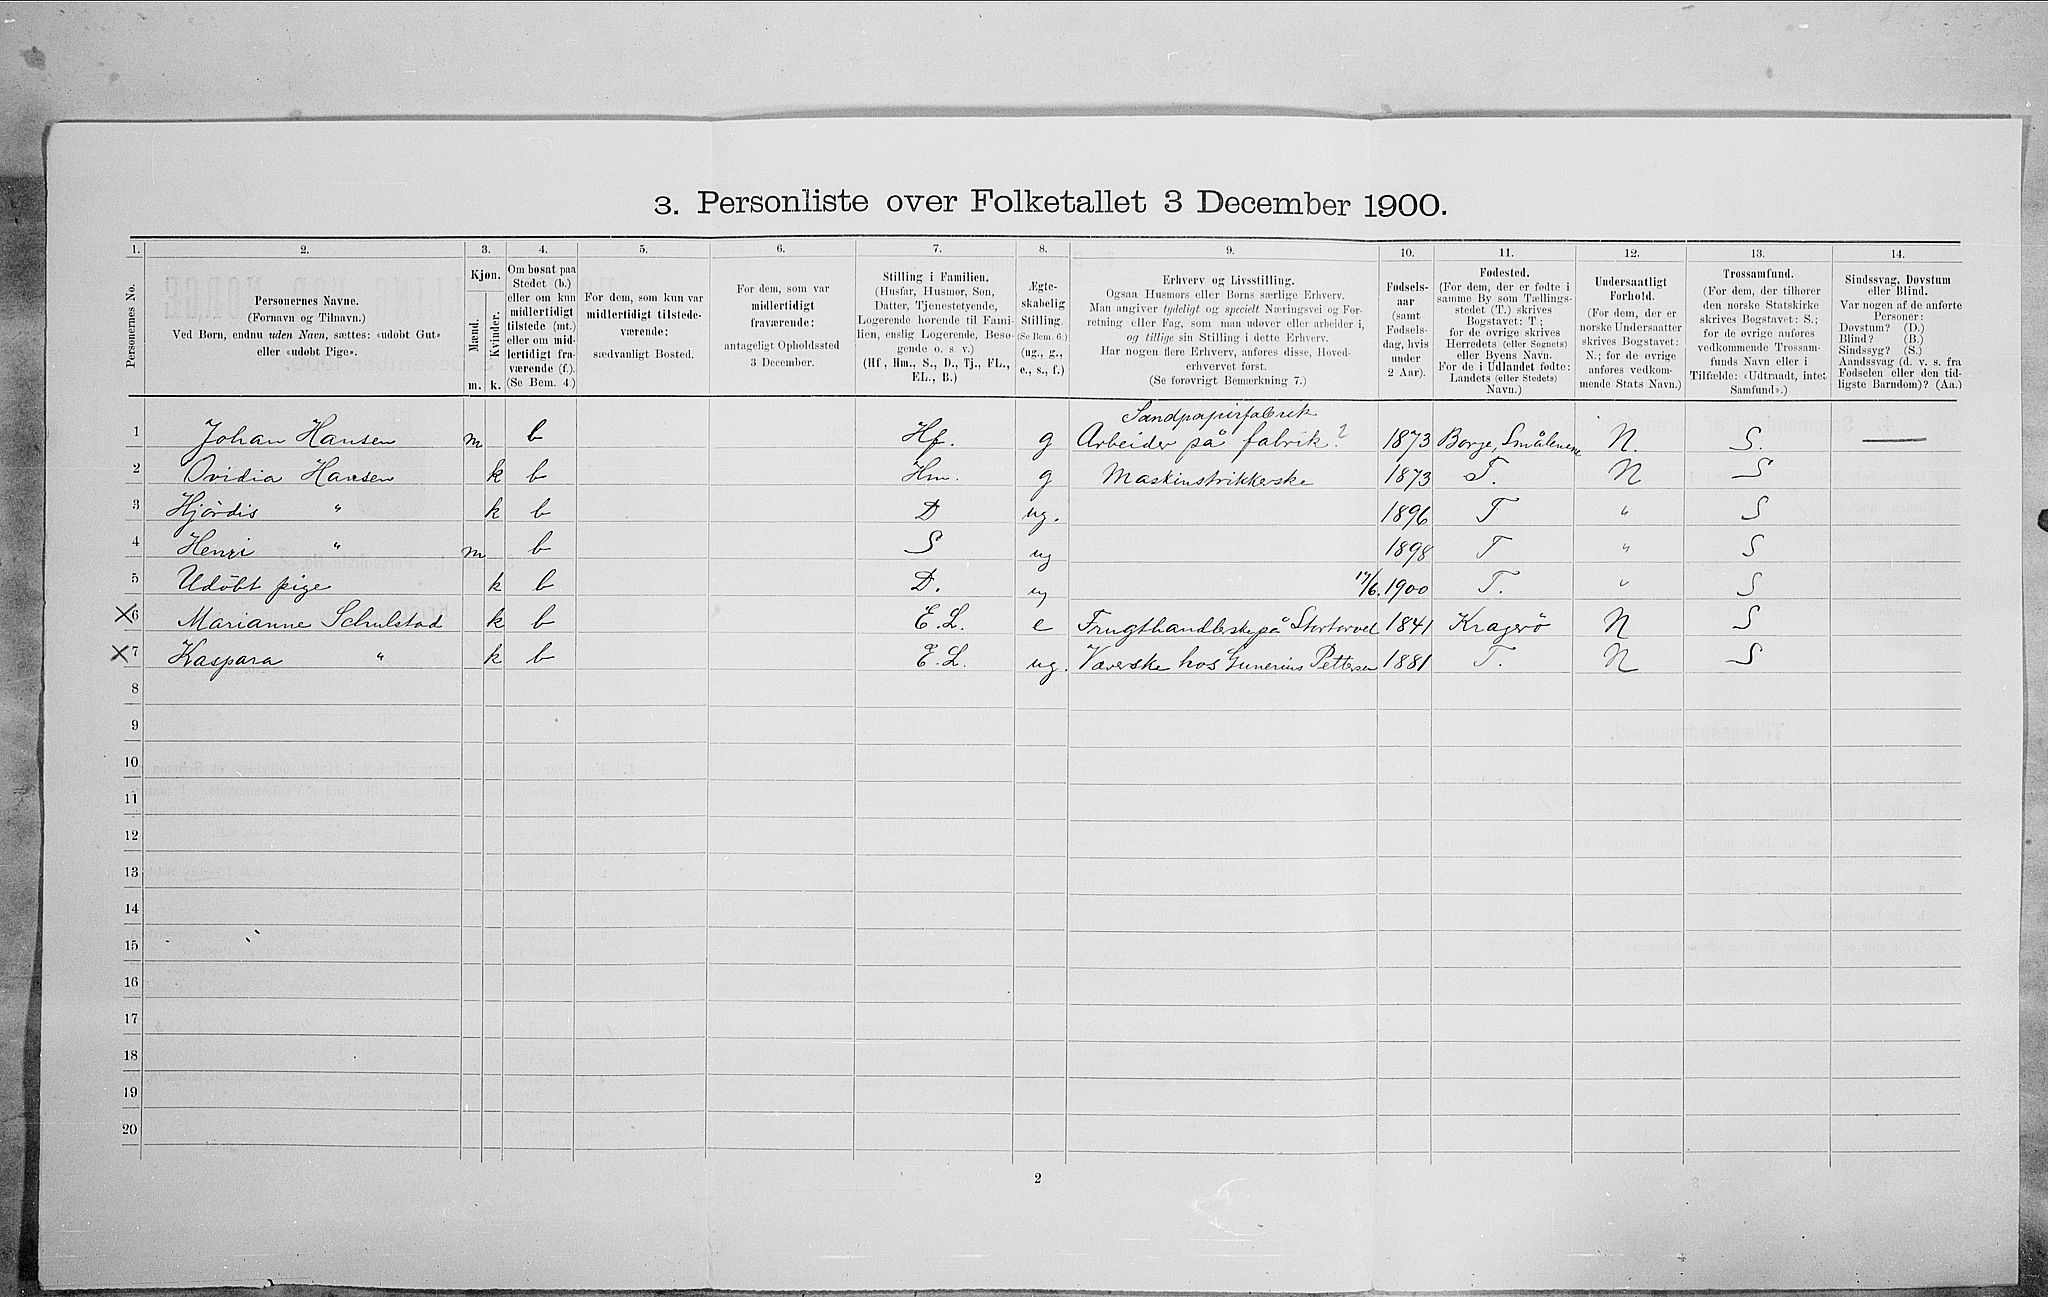 3. Personliste over Folketallet 3 December 1900.
1. 2. 3. 4. 5. 6. 7. 8. 9. 10. 11. 12. 13. 14.
Personernes No.
Personernes Navne.
(Fornavn og Tilnavn.)
Ved Børn, endnu uden Navn, sættes: «udøbt Gut»
eller «udøbt Pige».
Kjøn.
Mænd. Kvinder.
m. k.
Om bosat paa
Stedet (b.)
eller om kun
midlertidigt
tilstede (mt.)
eller om mid-
lertidigt fra-
værende (f.)
(Se Bem. 4.)
For dem, som kun var
midlertidigt tilstede-
værende:
sædvanligt Bosted.
For dem, som var
midlertidigt
fraværende:
antageligt Opholdssted
3 December.
Stilling i Familien.
(Husfar, Husmor, Søn,
Datter, Tjenestetyende,
Logerende hørende til Fami-
lien, enslig Logerende, Besø-
gende o. s. v.)
(Hf, Hm., S., D., Tj., FL.,
EL., B.)
Ægte-
skabelig
Stilling.
(Se Bem. 6.)
(ug., g.,
e., s., f.)
Erhverv og Livsstilling.
Ogsaa Husmors eller Børns særlige Erhverv.
Man angiver tydeligt og specielt Næringsvei og For-
retning eller Fag, som man udøver eller arbeider i,
og tillige sin Stilling i dette Erhverv.
Har nogen flere Erhverv, anføres disse, Hoved-
erhvervet først.
(Se forøvrigt Bemærkning 7.)
Fødsels-
aar
(samt
Fødsels-
dag, hvis
under
2 Aar).
Fødested.
(For dem, der er fødte i
samme By som Tællings-
stedet (T.) skrives
Bogstavet: T.;
for de øvrige skrives
Herredets (eller Sognets)
eller Byens Navn.
For de i Udlandet fødte:
Landets (eller Stedets)
Navn.)
Undersaatligt
Forhold.
(For dem, der er
norske Undersaatter
skrives Bogstavet:
N.; for de øvrige
anføres vedkom-
mende Stats Navn.)
Trossamfund.
(For dem, der tilhører
den norske Statskirke
skrives Bogstavet: S.;
for de øvrige anføres
vedkommende Trossam-
funds Navn eller i
Tilfælde: «Udtraadt, intet
Samfund».)
Sindssvag, Døvstum
eller Blind.
Var nogen af de anførte
Personer:
Døvstum? (D.)
Blind? (B.)
Sindssyg? (S.)
Aandssvag (d. v. s. fra
Fødselen eller den tid-
ligste Barndom)? (Aa.)
Sandpapirfabrik
1 Johan Hansen m b Hf. g Arbeider på fabrik? 1873 Borge, Smålenene N. S. —
2 Ovidia Hansen k b Hm. g Maskinstrikkerske 1873 T. N S
3 Hjördis " k b D ug. 1896 T " S
4 Henri " m b S ug 1898 T " S
5 Udöbt pige k b D. ug 17/6. 1900 T. " S
X6 Marianne Schulstad k b E.L. e Frugthandleske på Stortorvet 1841 Kragerö N S
X7 Kaspara " k b E.L. ug. Væverske hos Gunerius Pettersen 1881 T. N S
8
9
10
11
12
13
14
15
16
17
18
19
20
2